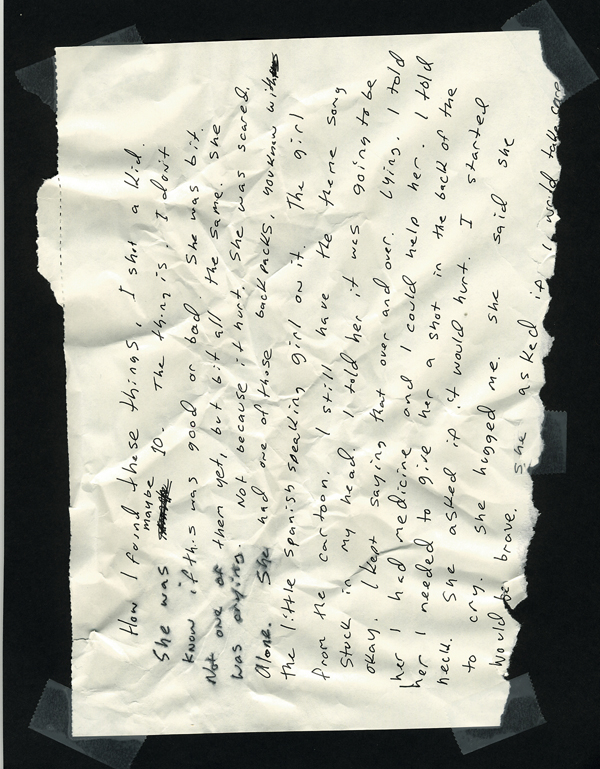 How I found these things, I shot a kid.
She was maybe 10. The thing is, I don't
know if this was good or bad. She was bit.
Not one of them yet, but bit all the same. She
was crying. Not because it hurt. She was scared.
Alone. She had one of those backpacks, you know with
the little spanish speaking girl on it. The girl
from the cartoon. I still have the theme song
stuck in my head. I told her it was going to be
okay. I kept saying that over and over. Lying. I told
her I had medicine and I could help her. I told
her I needed to give her a shot in the back of the
neck. She asked if it would hurt. I started
to cry. She hugged me. She said she
would be brave. She asked if I would take care